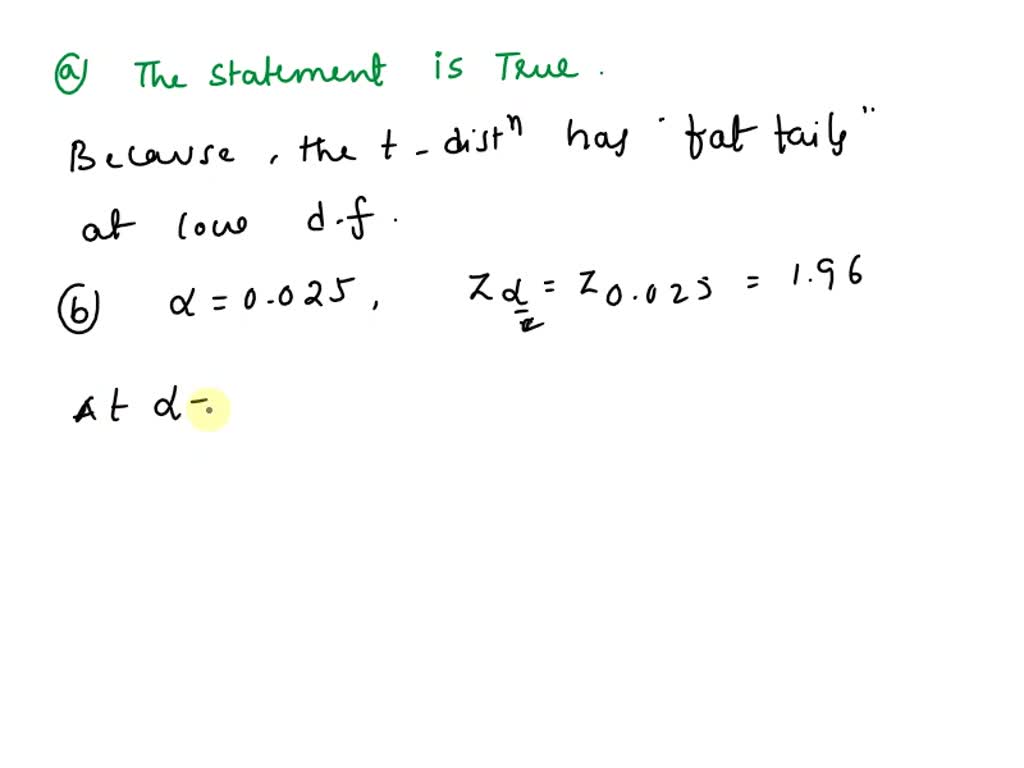 (a) The statement is True.
Because, the t-distⁿ has "fat tails"
at low d.f.
(b) α = 0.025, Zα = Z0.025 = 1.96
At α =